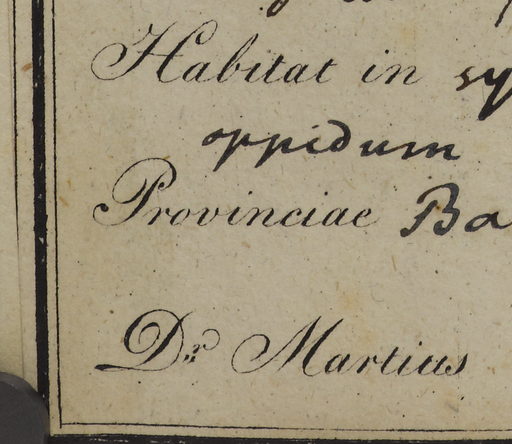 Habitat in sy
oppidum
Provinciae Ba
Dr Martius